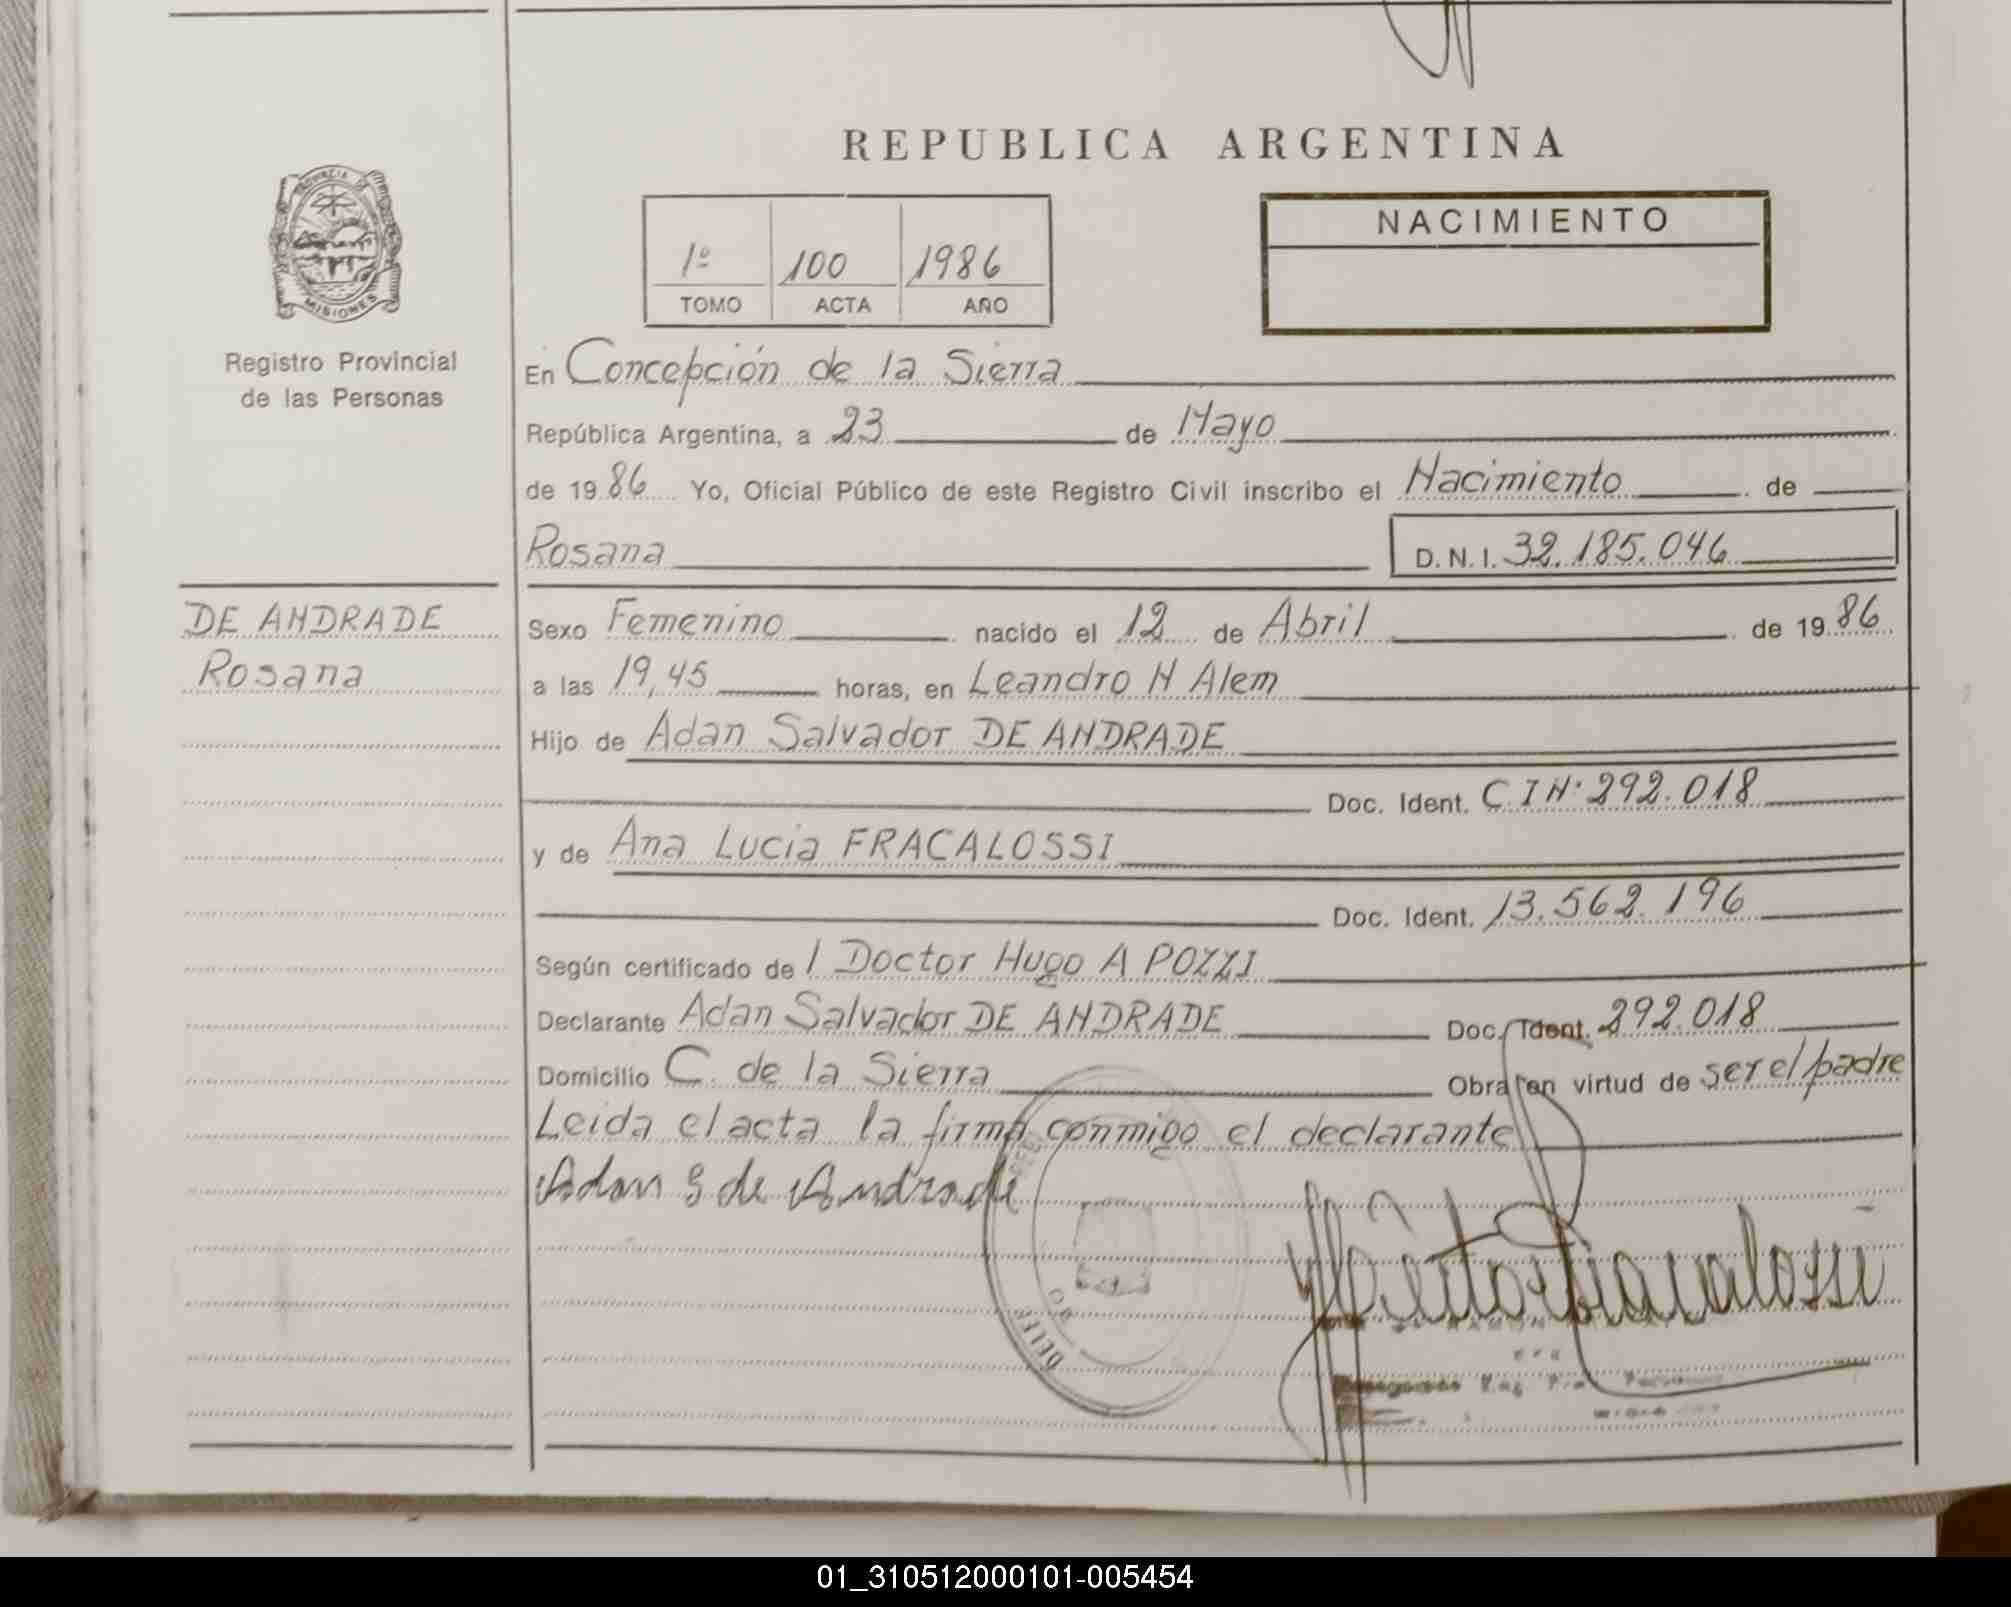 REPUBLICA ARGENTINA
PROVINCIA DE
MISIONES
Registro Provincial
de las Personas
1º 100 1986
TOMO ACTA AÑO
NACIMIENTO
En Concepción de la Sierra
República Argentina, a 23 de Mayo
de 1986 Yo, Oficial Público de este Registro Civil inscribo el Nacimiento de
Rosana D.N.I. 32.185.046
DE ANDRADE
Rosana
Sexo Femenino nacido el 12 de Abril de 1986
a las 19,45 horas, en Leandro N Alem
Hijo de Adan Salvador DE ANDRADE
Doc. Ident. C I N· 292.018
y de Ana Lucia FRACALOSSI
Doc. Ident. 13.562.196
Según certificado de l Doctor Hugo A POZZI
Declarante Adan Salvador DE ANDRADE Doc. Ident. 292.018
Domicilio C. de la Sierra Obra en virtud de ser el padre
Leida el acta la firma conmigo el declarante
Adan S de Andrade
01_310512000101-005454